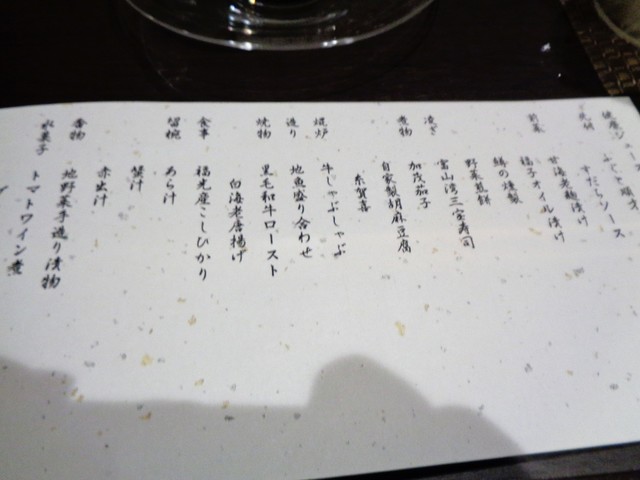 健康ジュース
すだちソース
前菜 甘海老麹漬け
梅子オイル漬け
鱒の燻製
野菜煎餅
凌ぎ 富山湾三宝寿司
煮物 加茂茄子
自家製胡麻豆腐
糸賀喜
焜炉 牛しゃぶしゃぶ
造り 地魚盛り合わせ
焼物 黒毛和牛ロースト
白海老唐揚げ
食事 福光産こしひかり
留椀 あら汁
蟹汁
赤出汁
香物 地野菜手造り漬物
水菓子 トマトワイン煮